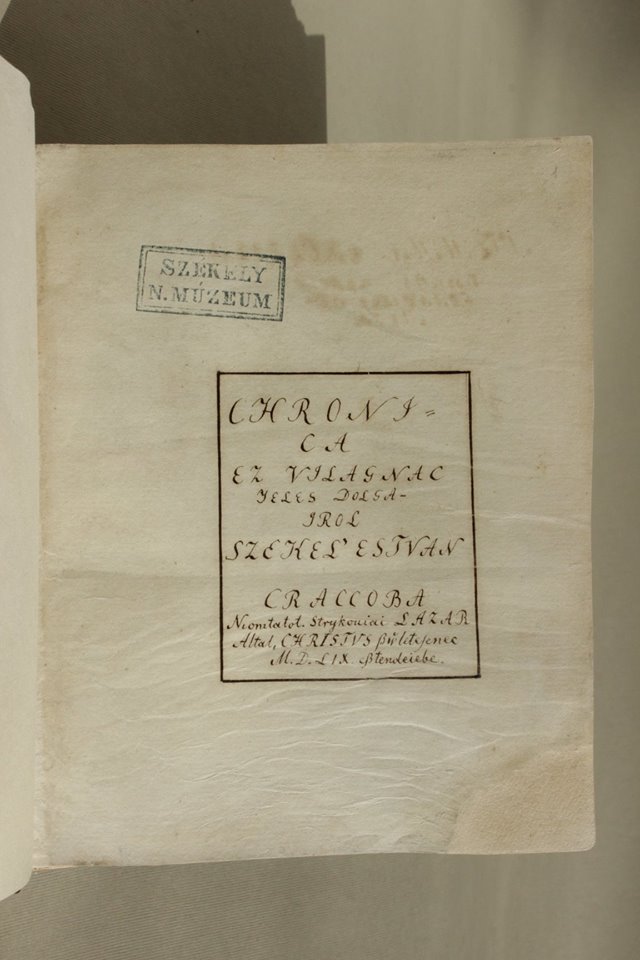 SZÉKELY
N. MÚZEUM
CHRONI=
CA
EZ VILAGNAC
JELES DOLGA-
IROL
SZEKEL' ESTVAN
CRACCOBA
Niomtatot. Strykouiai LAZAR
Altal, CHRISTVS ßületesenec
M.D.LIX. ßtendeiebe.